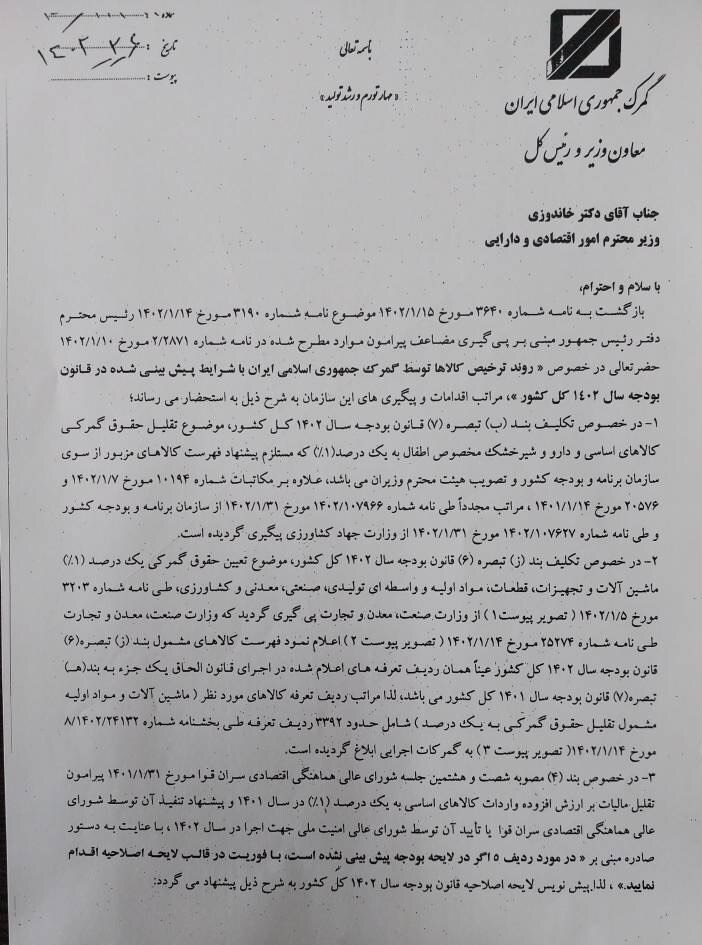 باسمه تعالی
«مهار تورم و رشد تولید»
تاریخ :
پیوست :
گمرک جمهوری اسلامی ایران
معاون وزیر و رئیس کل
جناب آقای دکتر خاندوزی
وزیر محترم امور اقتصادی و دارایی
با سلام و احترام،
بازگشت به نامه شماره ۳۶۴۰ مورخ ۱۴۰۲/۱/۱۵ موضوع نامه شماره ۳۱۹۰ مورخ ۱۴۰۲/۱/۱۴ رئیس محترم
دفتر رئیس جمهور مبنی بر پی‌گیری مضاعف پیرامون موارد مطرح شده در نامه شماره ۲/۲۸۷۱ مورخ ۱۴۰۲/۱/۱۰
حضرتعالی در خصوص « روند ترخیص کالاها توسط گمرک جمهوری اسلامی ایران با شرایط پیش بینی شده در قانون
بودجه سال ۱۴۰۲ کل کشور »، مراتب اقدامات و پیگیری های این سازمان به شرح ذیل به استحضار می رساند؛
۱- در خصوص تکلیف بند (ب) تبصره (۷) قانون بودجه سال ۱۴۰۲ کل کشور، موضوع تقلیل حقوق گمرکی
کالاهای اساسی و دارو و شیرخشک مخصوص اطفال به یک درصد(۱%) که مستلزم پیشنهاد فهرست کالاهای مزبور از سوی
سازمان برنامه و بودجه کشور و تصویب هیئت محترم وزیران می باشد، علاوه بر مکاتبات شماره ۱۰۱۹۴ مورخ ۱۴۰۲/۱/۷ و
۲۰۵۷۶ مورخ ۱۴۰۱/۱/۱۴ ، مراتب مجدداً طی نامه شماره ۱۴۰۲/۱۰۷۹۶۶ مورخ ۱۴۰۲/۱/۳۱ از سازمان برنامه و بودجه کشور
و طی نامه شماره ۱۴۰۲/۱۰۷۶۲۷ مورخ ۱۴۰۲/۱/۳۱ از وزارت جهاد کشاورزی پیگیری گردیده است.
۲- در خصوص تکلیف بند (ز) تبصره (۶) قانون بودجه سال ۱۴۰۲ کل کشور، موضوع تعیین حقوق گمرکی یک درصد (۱%)
ماشین آلات و تجهیزات، قطعات، مواد اولیه و واسطه ای تولیدی، صنعتی، معدنی و کشاورزی، طی نامه شماره ۳۲۰۳
مورخ ۱۴۰۲/۱/۵ ( تصویر پیوست۱ ) از وزارت صنعت، معدن و تجارت پی گیری گردید که وزارت صنعت، معدن و تجارت
طی نامه شماره ۲۵۲۷۴ مورخ ۱۴۰۲/۱/۱۴ ( تصویر پیوست ۲ ) اعلام نمود فهرست کالاهای مشمول بند (ز) تبصره(۶)
قانون بودجه سال ۱۴۰۲ کل کشور عیناً همان ردیف تعرفه های اعلام شده در اجرای قانون الحاق یک جزء به بند(هـ)
تبصره(۷) قانون بودجه سال ۱۴۰۱ کل کشور می باشد، لذا مراتب ردیف تعرفه کالاهای مورد نظر ( ماشین آلات و مواد اولیه
مشمول تقلیل حقوق گمرکی به یک درصد ) شامل حدود ۳۳۹۲ ردیف تعرفه طی بخشنامه شماره ۸/۱۴۰۲/۲۴۱۳۲
مورخ ۱۴۰۲/۱/۱۴( تصویر پیوست ۳ ) به گمرکات اجرایی ابلاغ گردیده است.
۳- در خصوص بند (۴) مصوبه شصت و هشتمین جلسه شورای عالی هماهنگی اقتصادی سران قوا مورخ ۱۴۰۱/۱/۳۱ پیرامون
تقلیل مالیات بر ارزش افزوده واردات کالاهای اساسی به یک درصد (۱%) در سال ۱۴۰۱ و پیشنهاد تنفیذ آن توسط شورای
عالی هماهنگی اقتصادی سران قوا یا تأیید آن توسط شورای عالی امنیت ملی جهت اجرا در سال ۱۴۰۲ ، با عنایت به دستور
صادره مبنی بر « در مورد ردیف ۵ اگر در لایحه بودجه پیش بینی نشده است، با فوریت در قالب لایحه اصلاحیه اقدام
نمایید.» ، لذا پیش نویس لایحه اصلاحیه قانون بودجه سال ۱۴۰۲ کل کشور به شرح ذیل پیشنهاد می گردد: